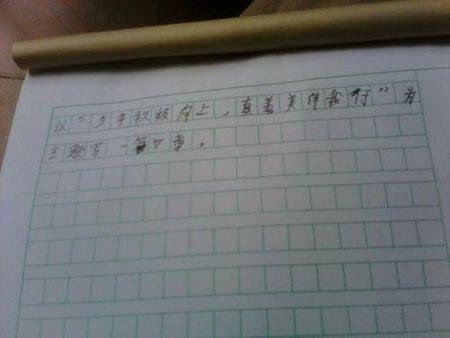 以“少年积极向上,真善美伴我行”为
主题写一篇文章。